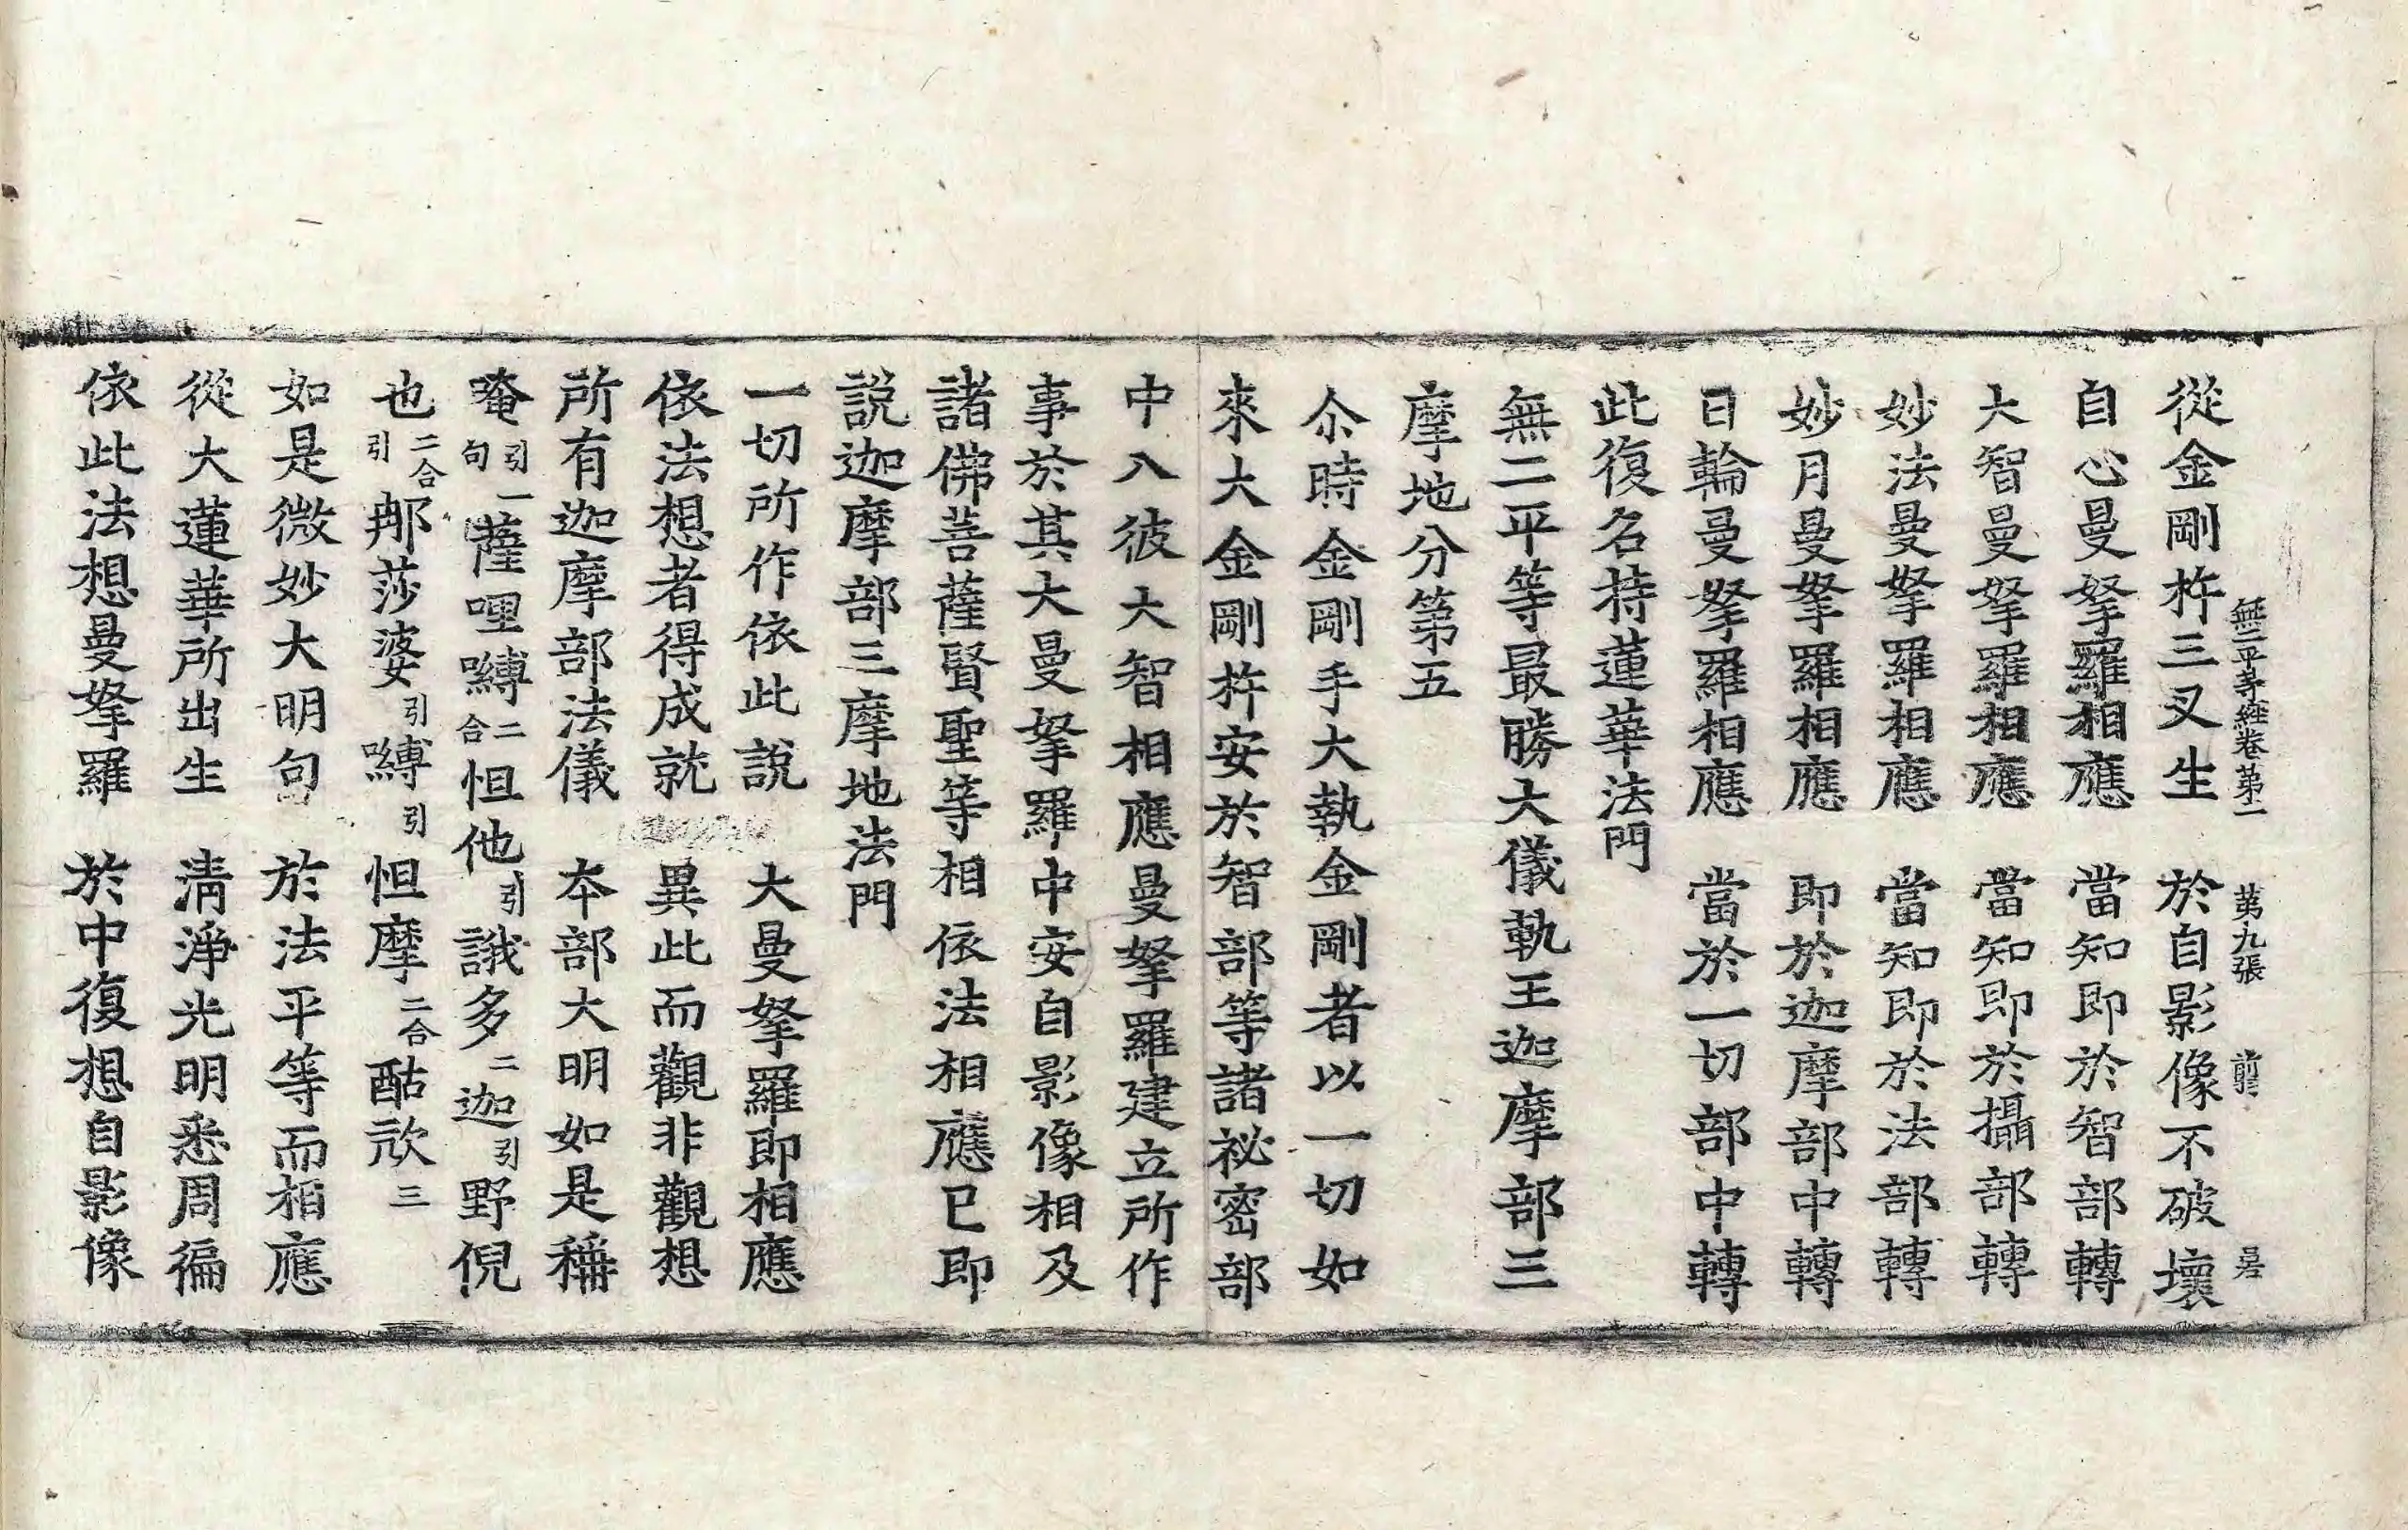 無二平等經卷第二 第九張 前 㝵
從金剛杵三叉生 於自影像不破壞
自心曼拏羅相應 當知即於智部轉
大智曼拏羅相應 當知即於攝部轉
妙法曼拏羅相應 當知即於法部轉
妙月曼拏羅相應 即於迦摩部中轉
日輪曼拏羅相應 當於一切部中轉
此復名持蓮華法門
無二平等最勝大儀軌王迦摩部三
摩地分第五
尒時金剛手大執金剛者以一切如
來大金剛杵安於智部等諸祕密部
中入彼大智相應曼拏羅建立所作
事於其大曼拏羅中安自影像相及
諸佛菩薩賢聖等相依法相應已即
說迦摩部三摩地法門
一切所作依此說 大曼拏羅即相應
依法想者得成就 異此而觀非觀想
所有迦摩部法儀 本部大明如是稱
唵引一句薩哩嚩二合怛他引誐多二迦引野倪
也二合引那莎婆引嚩引怛摩二合酤㰠三
如是微妙大明句 於法平等而相應
從大蓮華所出生 清淨光明悉周徧
依此法想曼拏羅 於中復想自影像